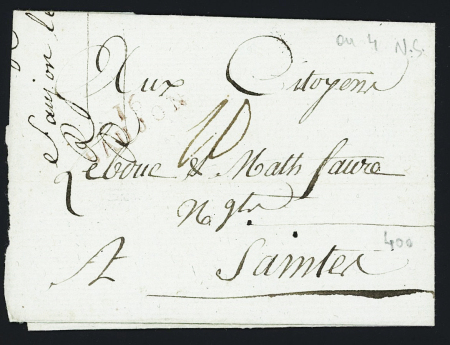 an 4 N.S.
Saujon le
Aux Citoyens
16
SAUJON
10
Leboue & Math faure
Ngts.
400
A Saintes